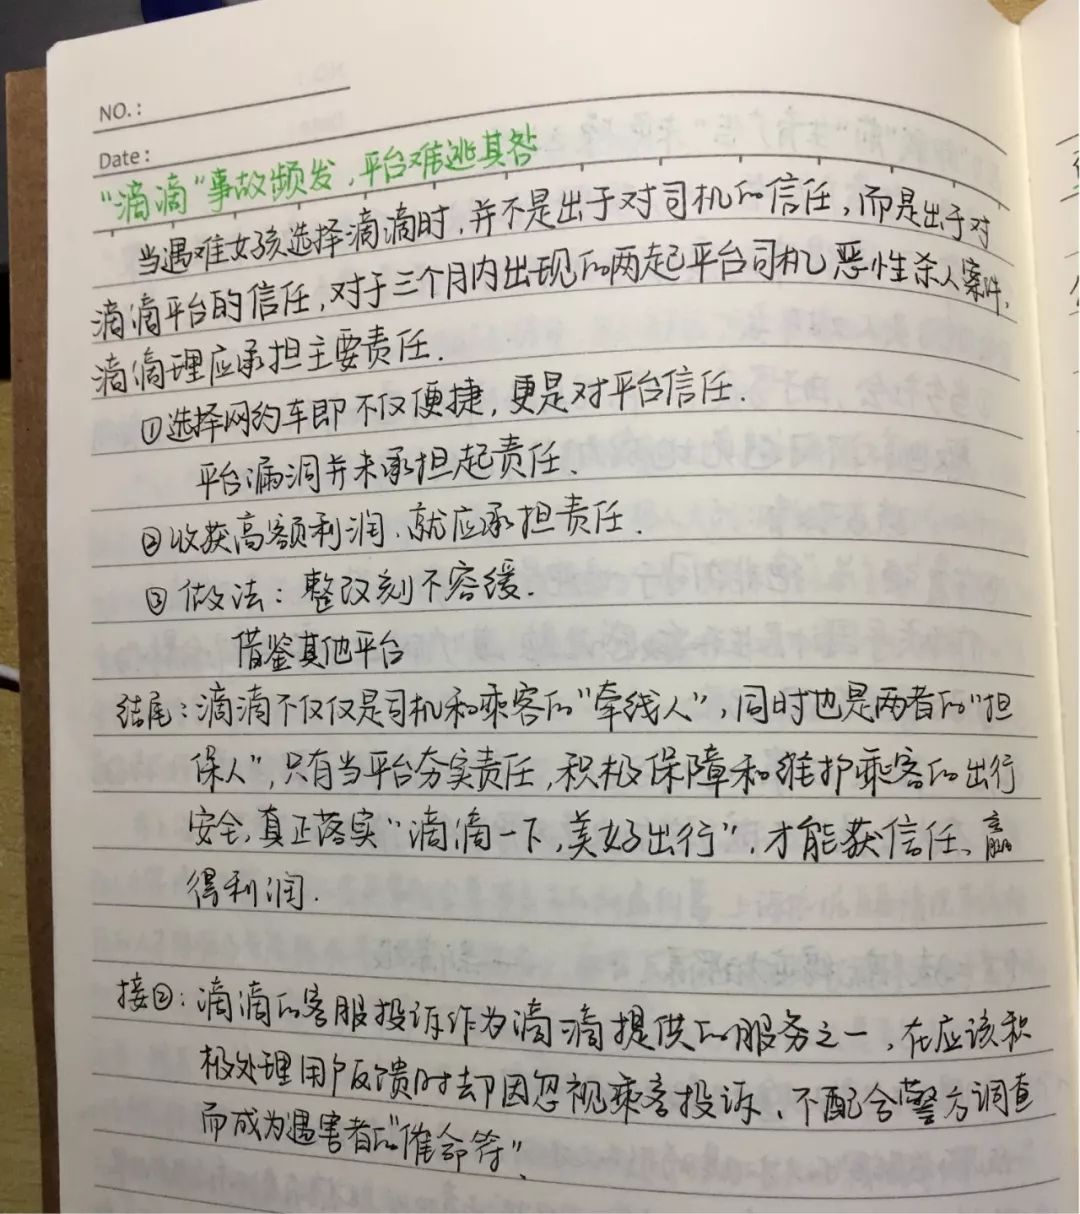 NO.:
Date:
"滴滴"事故频发，平台难逃其咎
当遇难女孩选择滴滴时，并不是出于对司机的信任，而是出于对
滴滴平台的信任，对于三个月内出现的两起平台司机恶性杀人案件，
滴滴理应承担主要责任．
①选择网约车即不仅便捷，更是对平台信任．
平台漏洞并未承担起责任．
②收获高额利润．就应承担责任．
③做法：整改刻不容缓．
借鉴其他平台
结尾：滴滴不仅仅是司机和乘客的"牵线人"，同时也是两者的"担
保人"，只有当平台夯实责任，积极保障和维护乘客的出行
安全，真正落实"滴滴一下，美好出行"，才能获信任、赢
得利润．
接②：滴滴的客服投诉作为滴滴提供的服务之一，在应该积
极处理用户反馈时却因忽视乘客投诉、不配合警方调查
而成为遇害者的"催命符"．